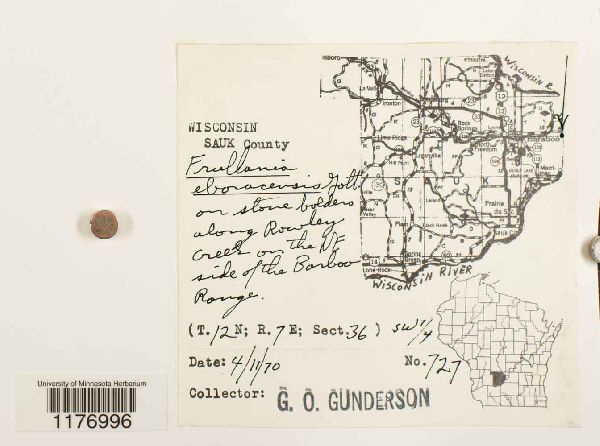 WISCONSIN
SAUK County
Frullania
eboracensis Gott.
on stone bolders
along Rowley
Creek on the NE
side of the Barboo
Range.
(T.12N; R.7E; Sect.36) SW 1/4
Date: 4/11/70 No. 727
Collector: G. O. GUNDERSON
WISCONSIN R.
La Valle
Ironton
Lime Ridge
Rock Springs
North Freedom
Baraboo
Hill Point
Loganville
S
U
K
Prairie du Sac
Sauk City
Plain
Black Hawk
Spring Green
Lone Rock
WISCONSIN RIVER
University of Minnesota Herbarium
1176996